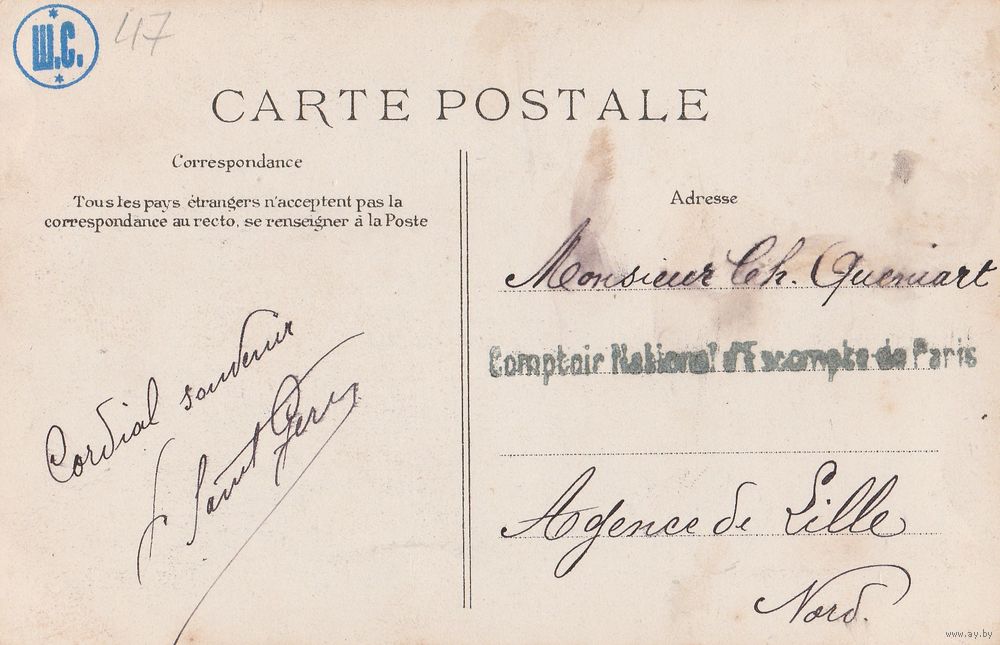 Ш.С.
47
CARTE POSTALE
Correspondance
Tous les pays étrangers n'acceptent pas la
correspondance au recto, se renseigner à la Poste
Cordial souvenir
Saint
Adresse
Monsieur Ch. Queniart
Comptoir National d'Escompte de Paris
Agence de Lille
Nord.
www.ay.by